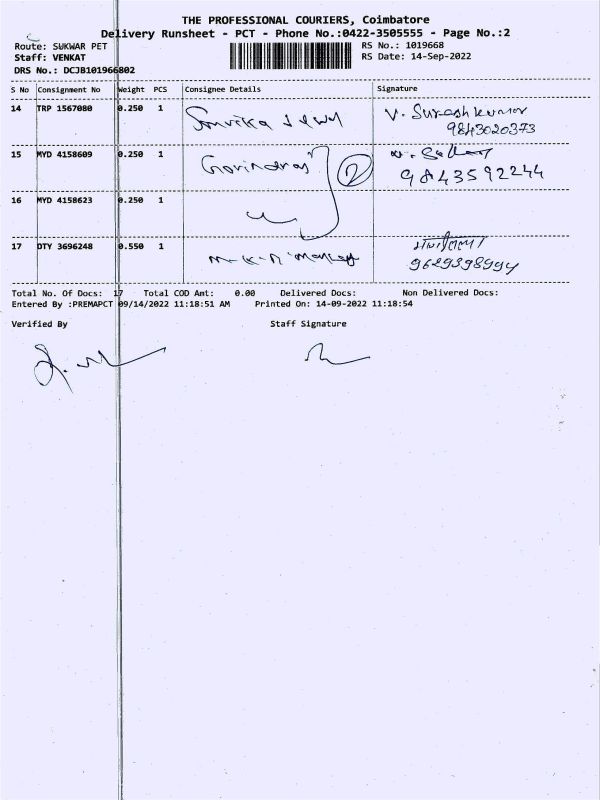 THE PROFESSIONAL COURIERS, Coimbatore
Delivery Runsheet - PCT - Phone No.:0422-3505555 - Page No.:2
Route: SUKWAR PET
RS No.: 1019668
Staff: VENKAT
RS Date: 14-Sep-2022
DRS No.: DCJB101966802
S No Consignment No Weight PCS Consignee Details Signature
14 TRP 1567080 0.250 1 V. Sureshkumar
9843020373
15 MYD 4158609 0.250 1 Govindraj 2
9843592244
16 MYD 4158623 0.250 1
17 DTY 3696248 0.550 1
9629398994
Total No. Of Docs: 17 Total COD Amt: 0.00 Delivered Docs: Non Delivered Docs:
Entered By :PREMAPCT 09/14/2022 11:18:51 AM Printed On: 14-09-2022 11:18:54
Verified By Staff Signature